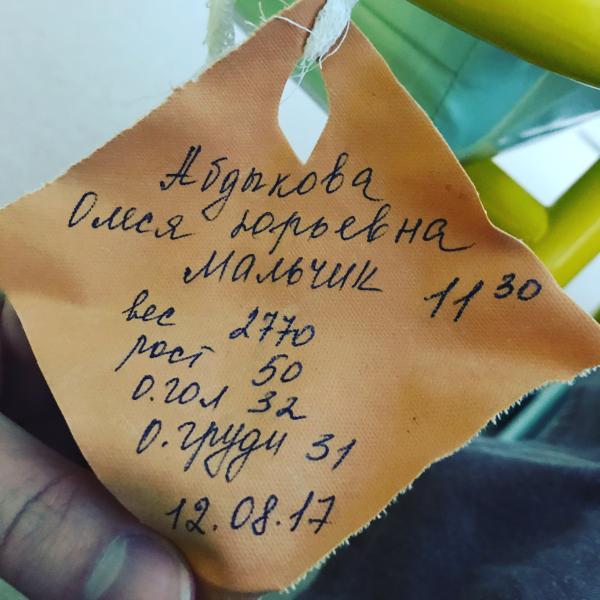 Абдыкова
Олеся Юрьевна
мальчик 11 30
вес 2770
рост 50
О.гол 32
О.груди 31
12.08.17